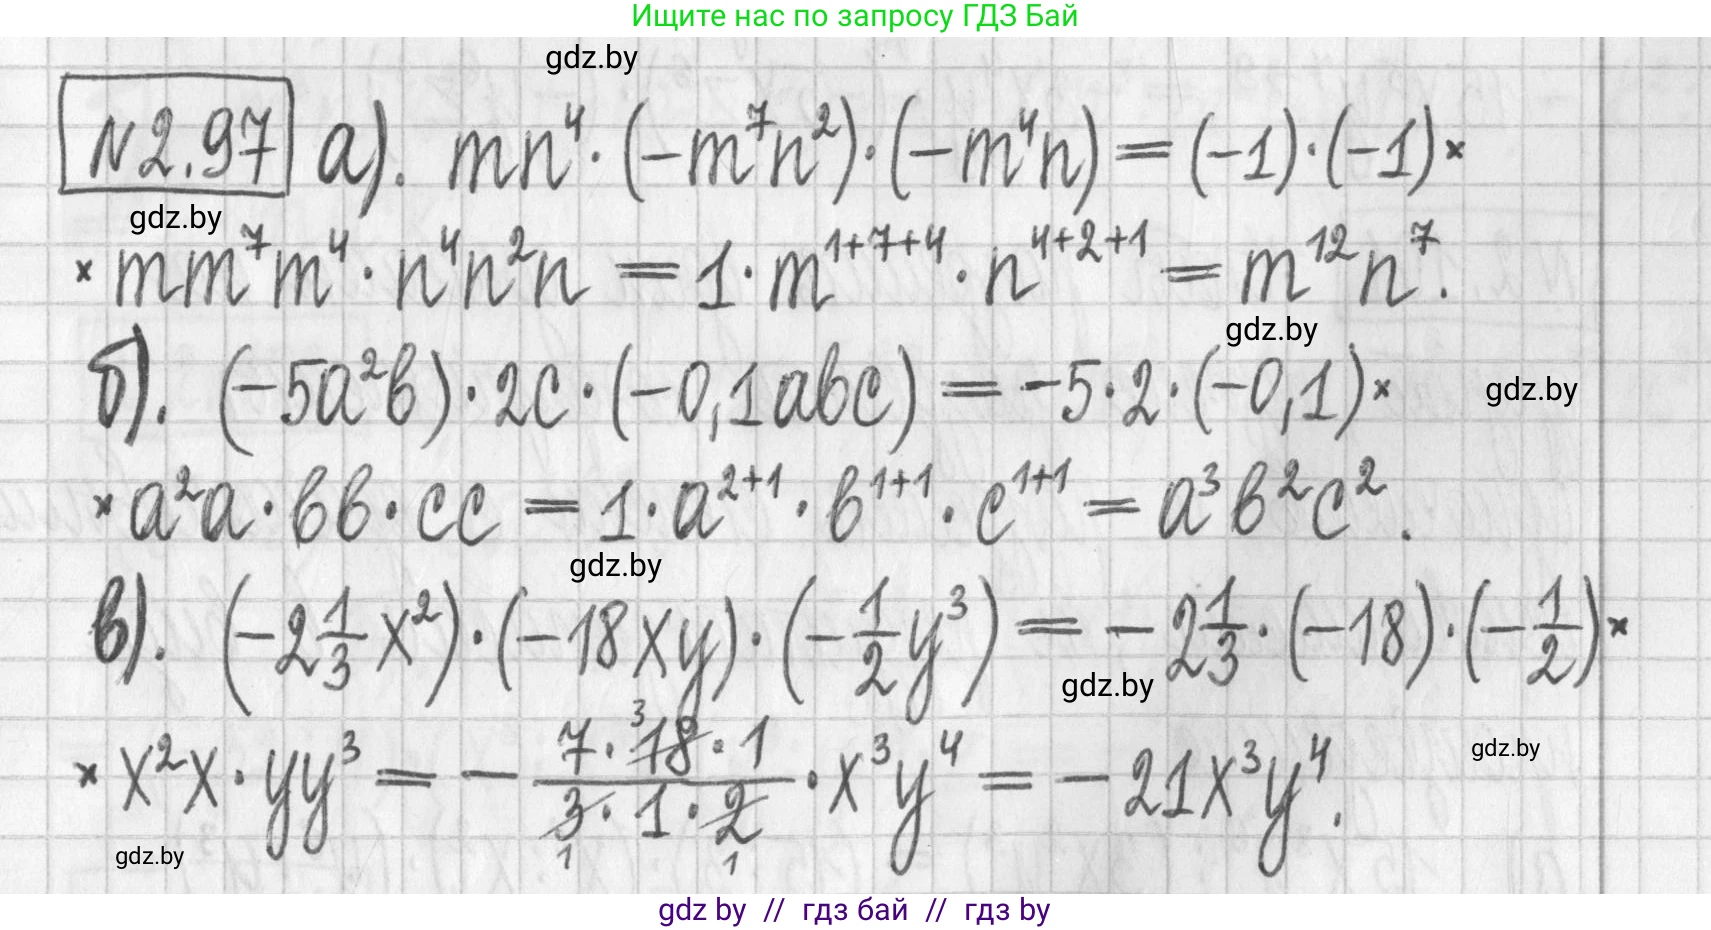 Ищите нас по запросу ГДЗ Бай
gdz.by
N2.97 а). mn⁴·(−m⁷n²)·(−m⁴n)=(−1)·(−1)×
gdz.by
×mm⁷m⁴·n⁴n²n=1·m¹⁺⁷⁺⁴·n⁴⁺²⁺¹=m¹²n⁷.
gdz.by
б). (−5a²b)·2c·(−0,1abc)=−5·2·(−0,1)×
gdz.by
×a²a·bb·cc=1·a²⁺¹·b¹⁺¹·c¹⁺¹=a³b²c².
gdz.by
в). (−2 1/3 x²)·(−18xy)·(−1/2 y³)=−2 1/3·(−18)·(−1/2)×
gdz.by
×x²x·yy³=− (7·18 3·1)/(3 1·1·2 1)·x³y⁴=−21x³y⁴.
gdz.by
gdz.by
gdz by // гдз бай // гдз by